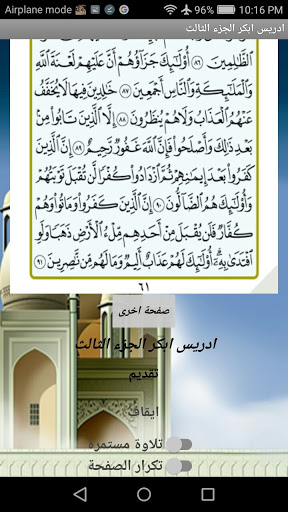 Airplane mode 96% 10:16 PM
ادريس ابكر الجزء الثالث
ٱلظَّٰلِمِينَ ٨٦ أُوْلَٰٓئِكَ جَزَآؤُهُمْ أَنَّ عَلَيْهِمْ لَعْنَةَ ٱللَّهِ
وَٱلْمَلَٰٓئِكَةِ وَٱلنَّاسِ أَجْمَعِينَ ٨٧ خَٰلِدِينَ فِيهَا لَا يُخَفَّفُ
عَنْهُمُ ٱلْعَذَابُ وَلَا هُمْ يُنظَرُونَ ٨٨ إِلَّا ٱلَّذِينَ تَابُوا۟ مِنۢ
بَعْدِ ذَٰلِكَ وَأَصْلَحُوا۟ فَإِنَّ ٱللَّهَ غَفُورٌ رَّحِيمٌ ٨٩ إِنَّ ٱلَّذِينَ
كَفَرُوا۟ بَعْدَ إِيمَٰنِهِمْ ثُمَّ ٱزْدَادُوا۟ كُفْرًا لَّن تُقْبَلَ تَوْبَتُهُمْ
وَأُوْلَٰٓئِكَ هُمُ ٱلضَّآلُّونَ ٩٠ إِنَّ ٱلَّذِينَ كَفَرُوا۟ وَمَاتُوا۟ وَهُمْ
كُفَّارٌ فَلَن يُقْبَلَ مِنْ أَحَدِهِم مِّلْءُ ٱلْأَرْضِ ذَهَبًا وَلَوِ
ٱفْتَدَىٰ بِهِۦٓ أُوْلَٰٓئِكَ لَهُمْ عَذَابٌ أَلِيمٌ وَمَا لَهُم مِّن نَّٰصِرِينَ ٩١
٦١
صفحة اخرى
ادريس ابكر الجزء الثالث
تقديم
ايقاف
تلاوة مستمره
تكرار الصفحة